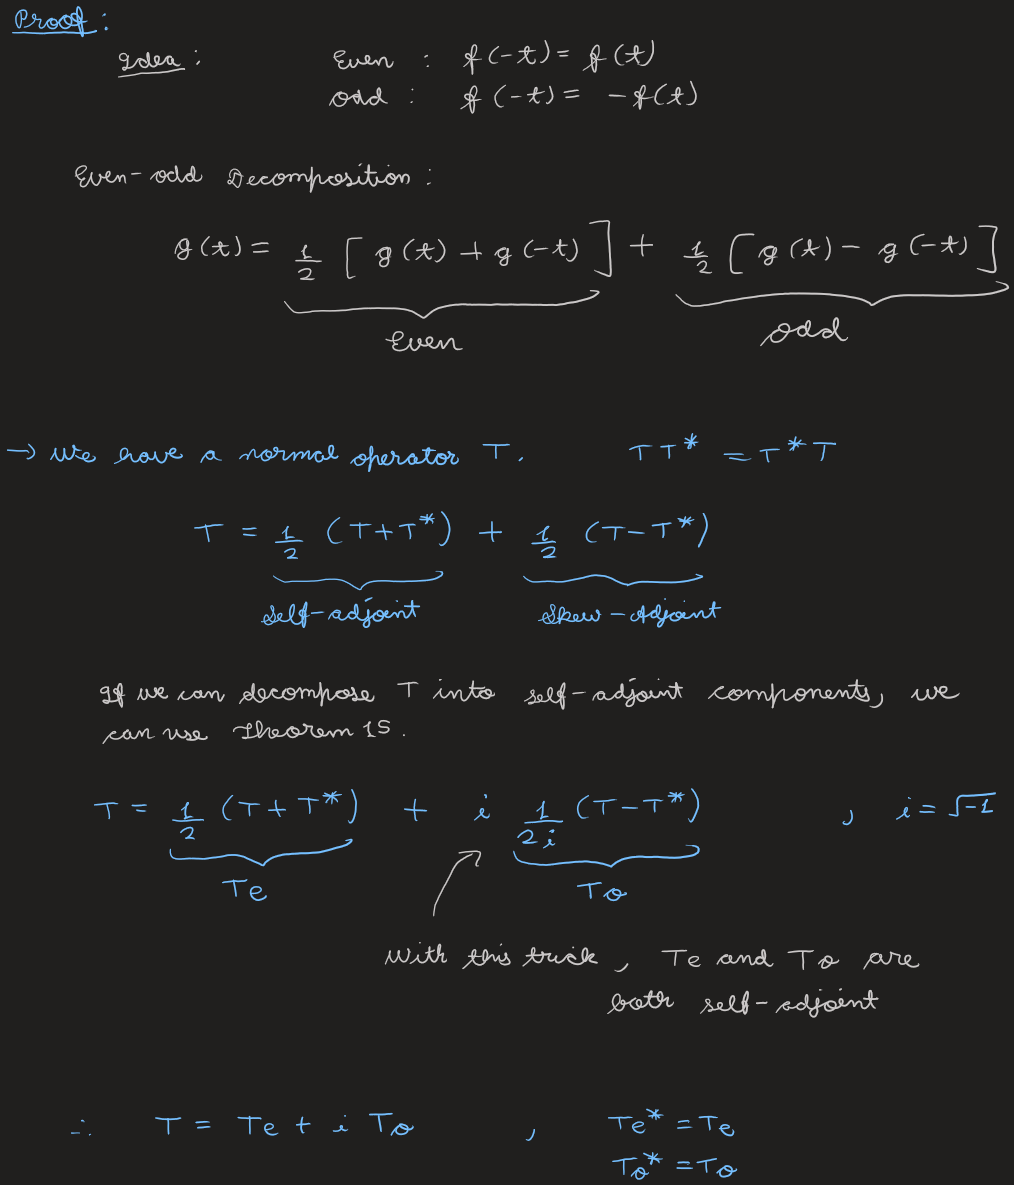 Proof:
Idea: Even : f(-t) = f(t)
Odd : f(-t) = -f(t)
Even-odd Decomposition:
g(t) = 1/2 [g(t) + g(-t)] + 1/2 [g(t) - g(-t)]
Even Odd
→ We have a normal operator T. TT* = T*T
T = 1/2 (T+T*) + 1/2 (T-T*)
Self-adjoint Skew-Adjoint
If we can decompose T into self-adjoint components, we
can use Theorem 15.
T = 1/2 (T+T*) + i 1/2i (T-T*) , i = √-1
Te To
With this trick, Te and To are
both self-adjoint
∴ T = Te + i To , Te* = Te
To* = To